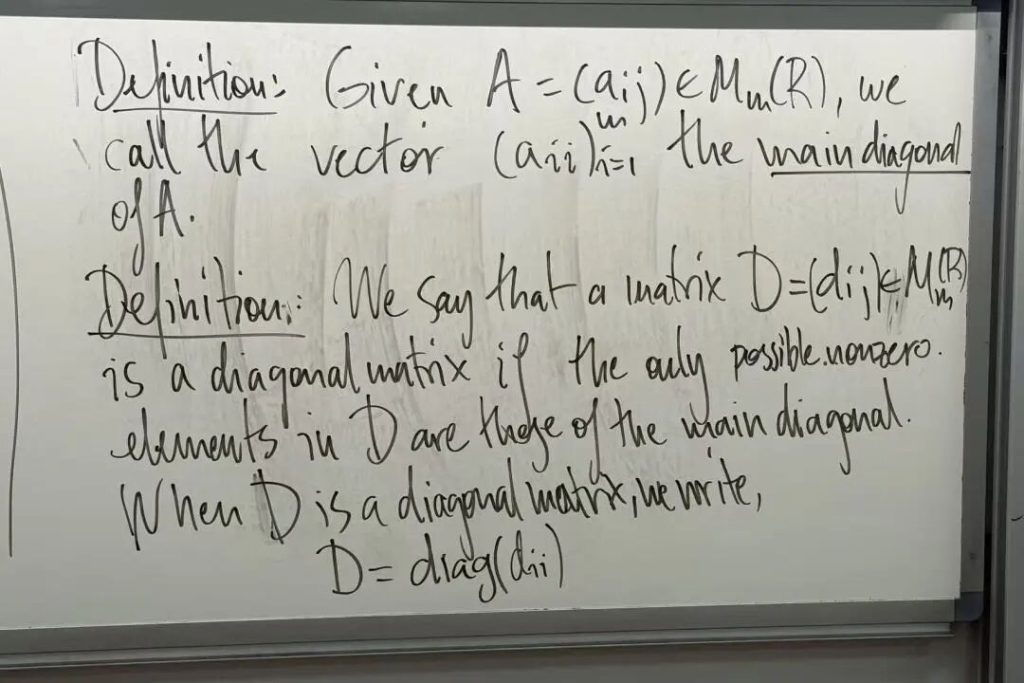 Definition: Given A = (aij) ∈ Mm(R), we
call the vector (aii)ᵐi=1 the main diagonal
of A.
Definition: We say that a matrix D=(dij)∈Mm(R)
is a diagonal matrix if the only possible nonzero.
elements in D are those of the main diagonal.
When D is a diagonal matrix, we write,
D = diag(dii)